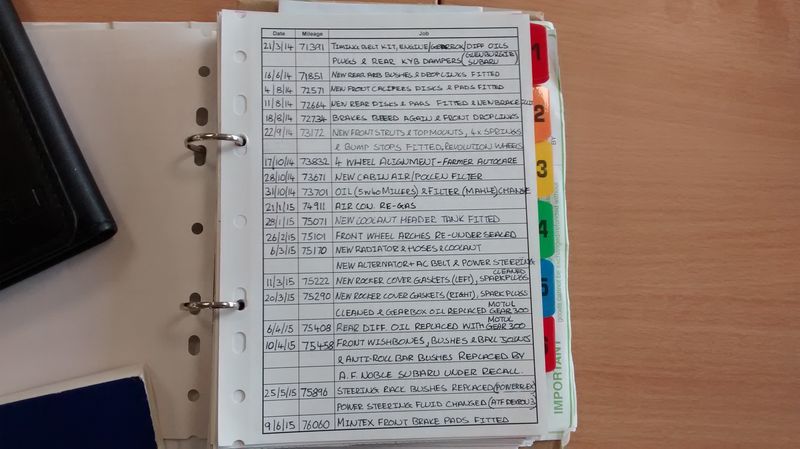 Date Mileage Job
21/3/14 71391 TIMING BELT KIT, ENGINE/GEARBOX/DIFF OILS
PLUGS & REAR KYB DAMPERS (GLENBURGIE SUBARU)
16/6/14 71851 NEW REAR ARB BUSHES & DROPLINKS FITTED
4/8/14 72571 NEW FRONT CALIPERS DISCS & PADS FITTED
11/8/14 72664 NEW REAR DISCS & PADS FITTED & NEW BRAKE FLUID
18/8/14 72734 BRAKES BLEED AGAIN & FRONT DROPLINKS
22/9/14 73172 NEW FRONT STRUTS & TOP MOUNTS, 4X SPRINGS
& BUMP STOPS FITTED, REVOLUTION WHEELS
17/10/14 73832 4 WHEEL ALIGNMENT - FARMER AUTOCARE
28/10/14 73671 NEW CABIN AIR/POLLEN FILTER
31/10/14 73701 OIL (5W40 MILLERS) & FILTER (MAHLE) CHANGE
21/1/15 74911 AIR CON. RE-GAS
28/1/15 75071 NEW COOLANT HEADER TANK FITTED
26/2/15 75101 FRONT WHEEL ARCHES RE-UNDERSEALED
6/3/15 75170 NEW RADIATOR & HOSES & COOLANT
NEW ALTERNATOR + AC BELT & POWER STEERING
11/3/15 75222 NEW ROCKER COVER GASKETS (LEFT), CLEANED SPARKPLUGS
20/3/15 75290 NEW ROCKER COVER GASKETS (RIGHT), SPARK PLUGS
CLEANED & GEARBOX OIL REPLACED MOTUL GEAR 300
6/4/15 75408 REAR DIFF. OIL REPLACED WITH MOTUL GEAR 300
10/4/15 75458 FRONT WISHBONES, BUSHES & BALL JOINTS
& ANTI-ROLL BAR BUSHES REPLACED BY
A.F. NOBLE SUBARU UNDER RECALL.
25/5/15 75896 STEERING RACK BUSHES REPLACED (POWERFLEX)
POWER STEERING FLUID CHANGED (ATF DEXRON 3)
9/6/15 76060 MINTEX FRONT BRAKE PADS FITTED
1
2
3
4
5
IMPORTANT